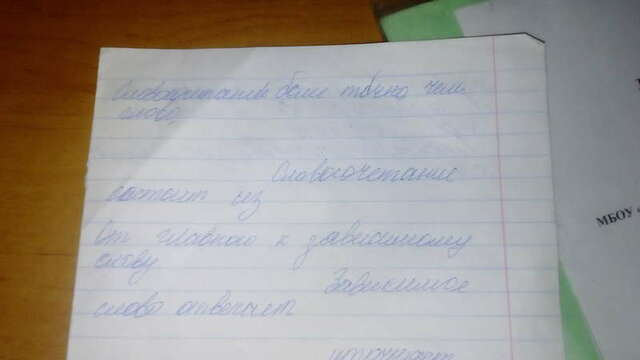 Словосочетание более точно чем
слово,
Словосочетание
состоит из
От главного к зависимому
слову
Зависимое
слово отвечает
МБОУ «